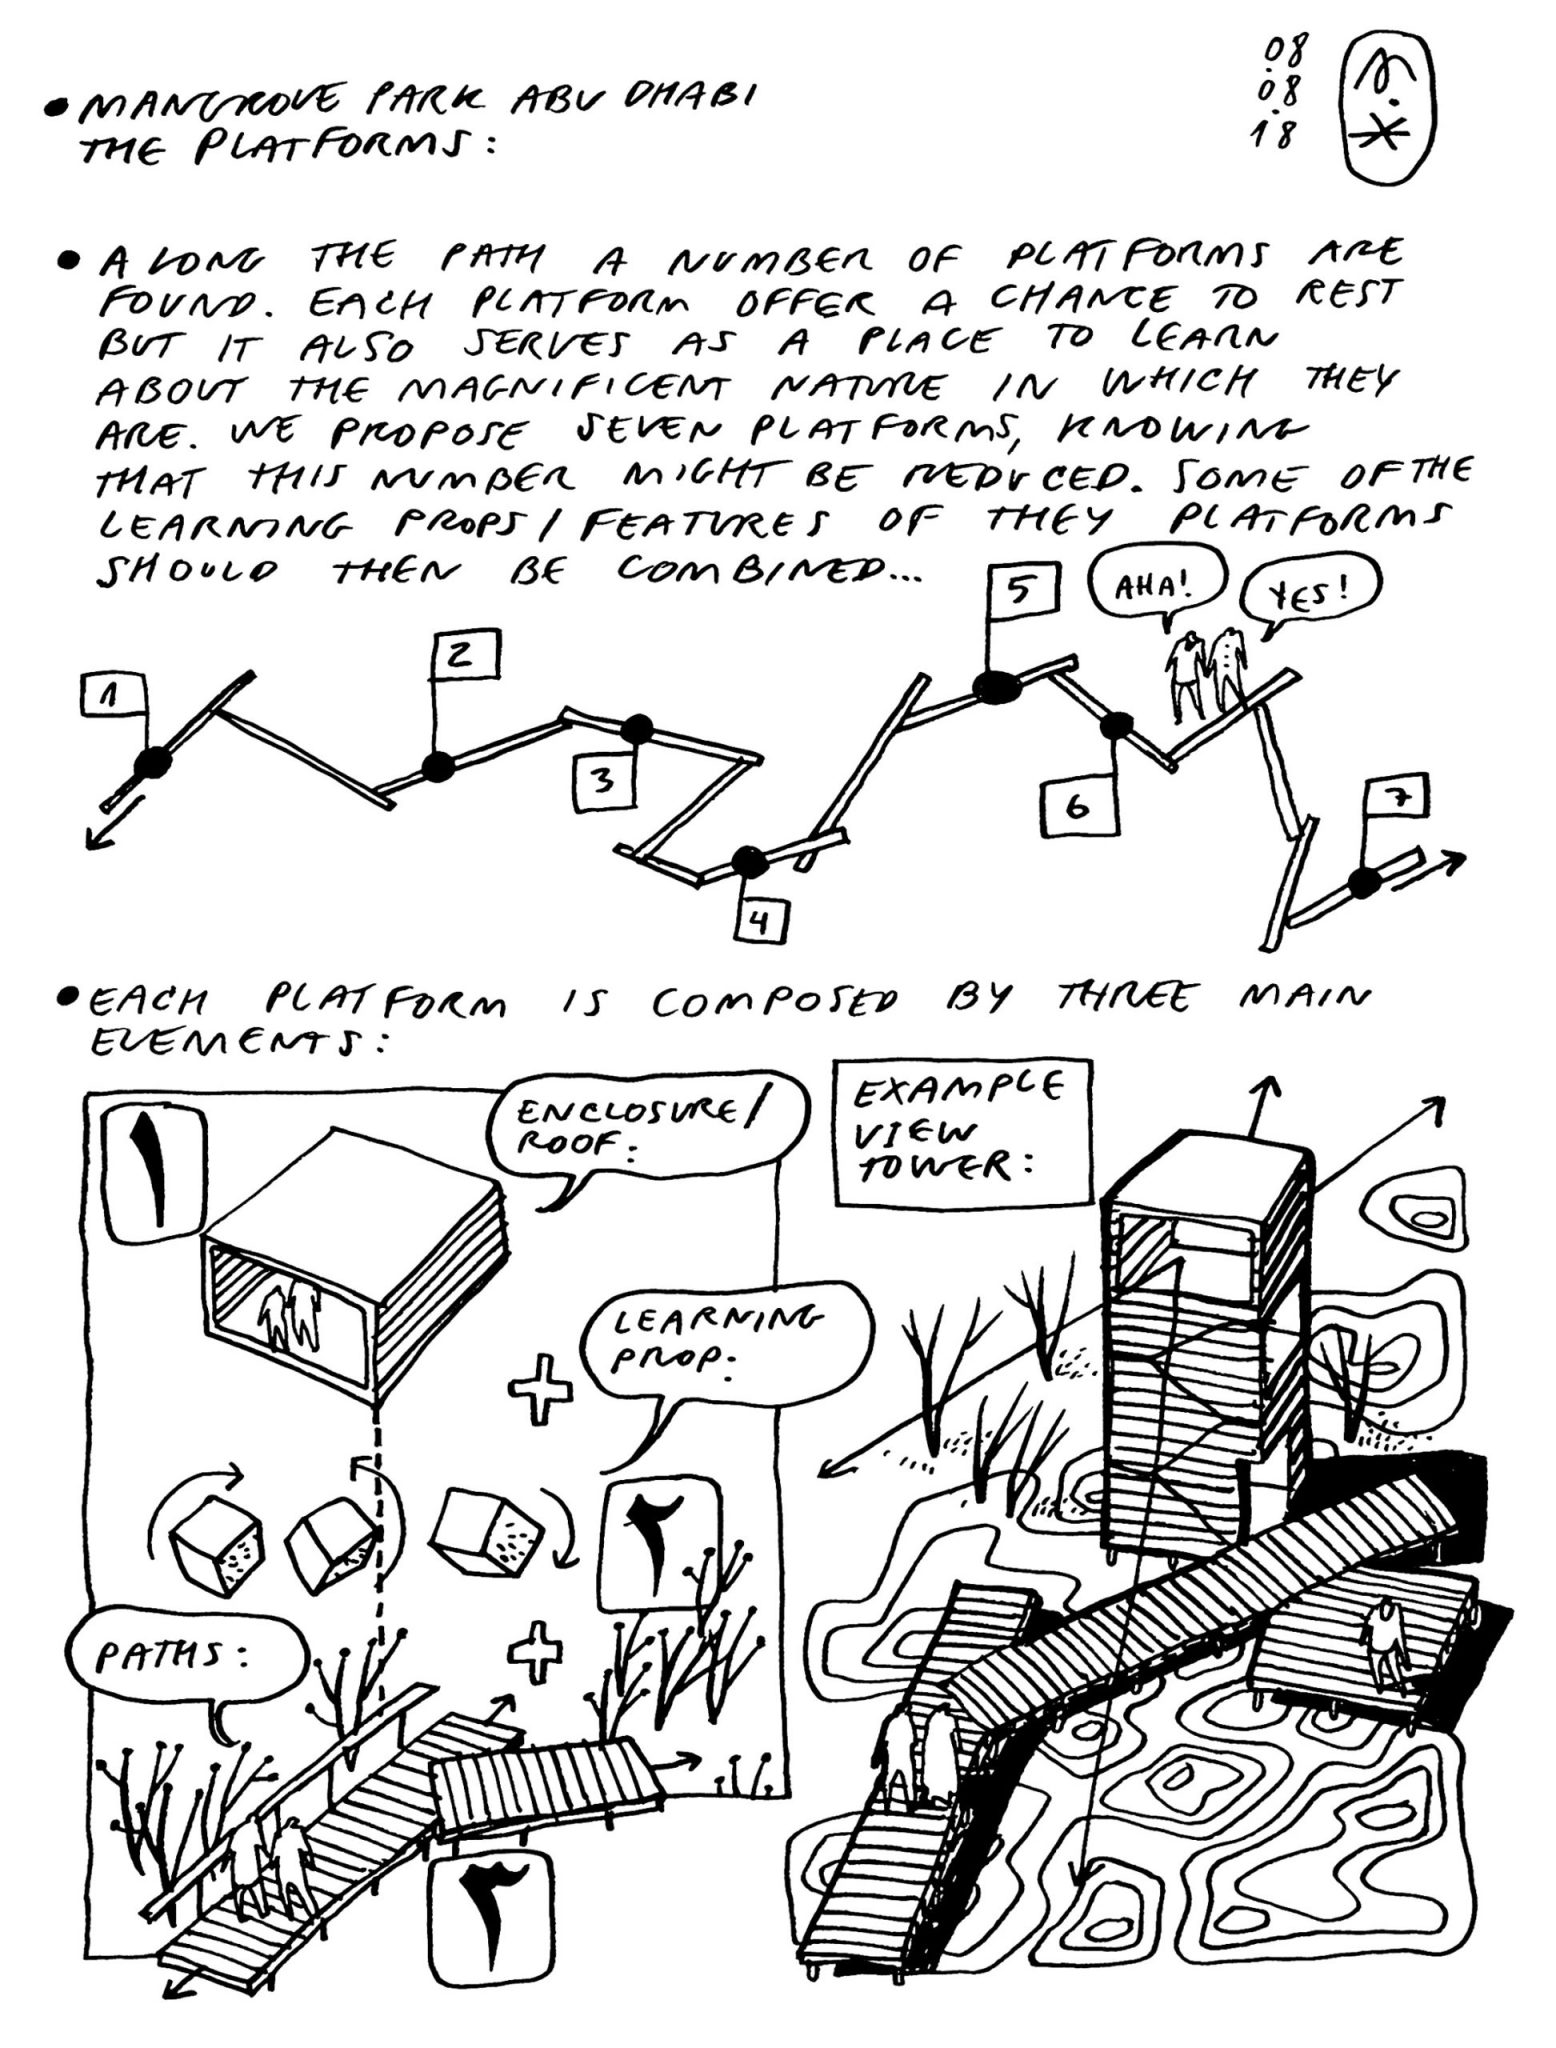 08.
08.
18
• MANGROVE PARK ABU DHABI
THE PLATFORMS:
• ALONG THE PATH A NUMBER OF PLATFORMS ARE
FOUND. EACH PLATFORM OFFER A CHANCE TO REST
BUT IT ALSO SERVES AS A PLACE TO LEARN
ABOUT THE MAGNIFICENT NATURE IN WHICH THEY
ARE. WE PROPOSE SEVEN PLATFORMS, KNOWING
THAT THIS NUMBER MIGHT BE REDUCED. SOME OF THE
LEARNING PROPS/FEATURES OF THEY PLATFORMS
SHOULD THEN BE COMBINED...
AHA!
YES!
1
2
3
4
5
6
7
• EACH PLATFORM IS COMPOSED BY THREE MAIN
ELEMENTS:
١
ENCLOSURE/
ROOF:
LEARNING
PROP:
٢
PATHS:
٣
EXAMPLE
VIEW
TOWER: